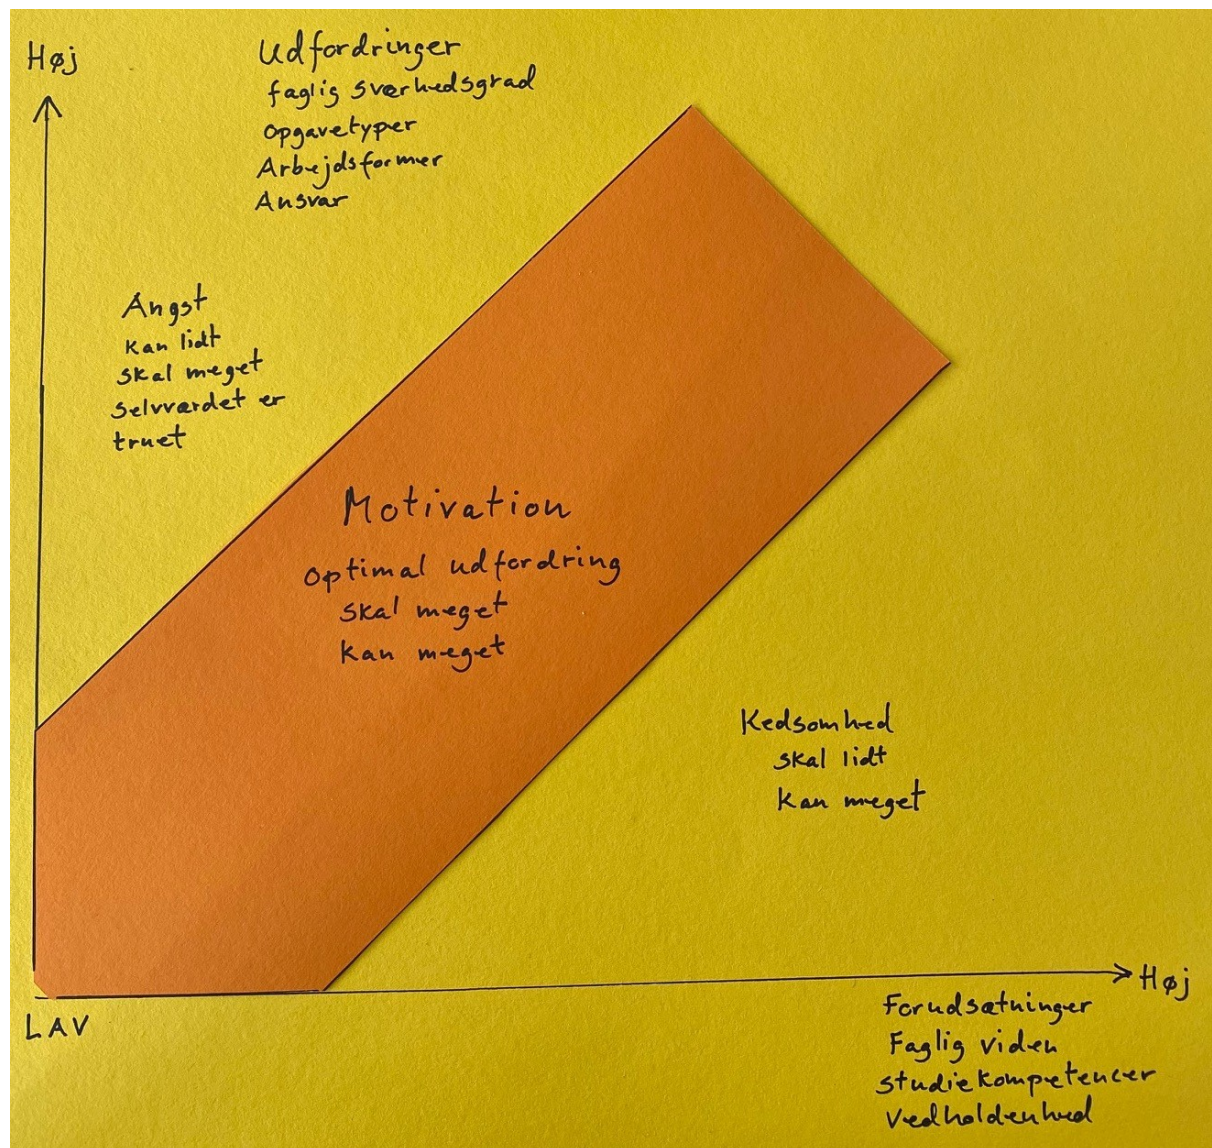 Høj
Udfordringer
faglig sværhedsgrad
opgavetyper
Arbejdsformer
Ansvar
Angst
Kan lidt
skal meget
selvværdet er
truet
Motivation
optimal udfordring
skal meget
kan meget
Kedsomhed
skal lidt
kan meget
Høj
LAV
Forudsætninger
Faglig viden
studiekompetencer
vedholdenhed